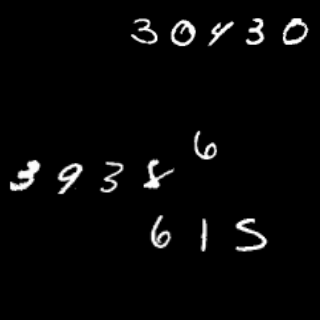 30430
6
3938
615